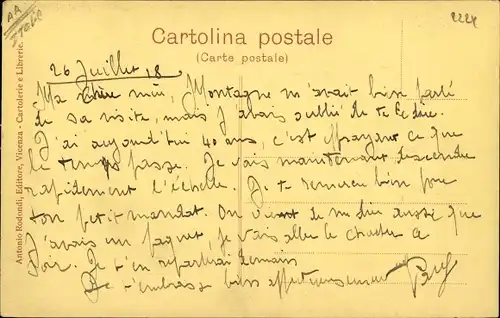 AA
2224
Cartolina postale
(Carte postale)
Antonio Rodondi, Editore, Vicenza - Cartolerie e Librerie.
26 Juillet 18
Ma chère mie, Montagne m'avait bien parlé
de sa visite, mais j'avais oublié de te le dire.
J'ai aujourd'hui 40 ans, c'est effrayant ce que
le temps passe. Je vais maintenant descendre
rapidement l'échelle. Je te remercie bien pour
ton petit mandat. On vient de me dire aussi que
j'avais un paquet, je vais aller le chercher ce
soir. Je t'en reparlerai demain
Je t'embrasse bien affectueusement